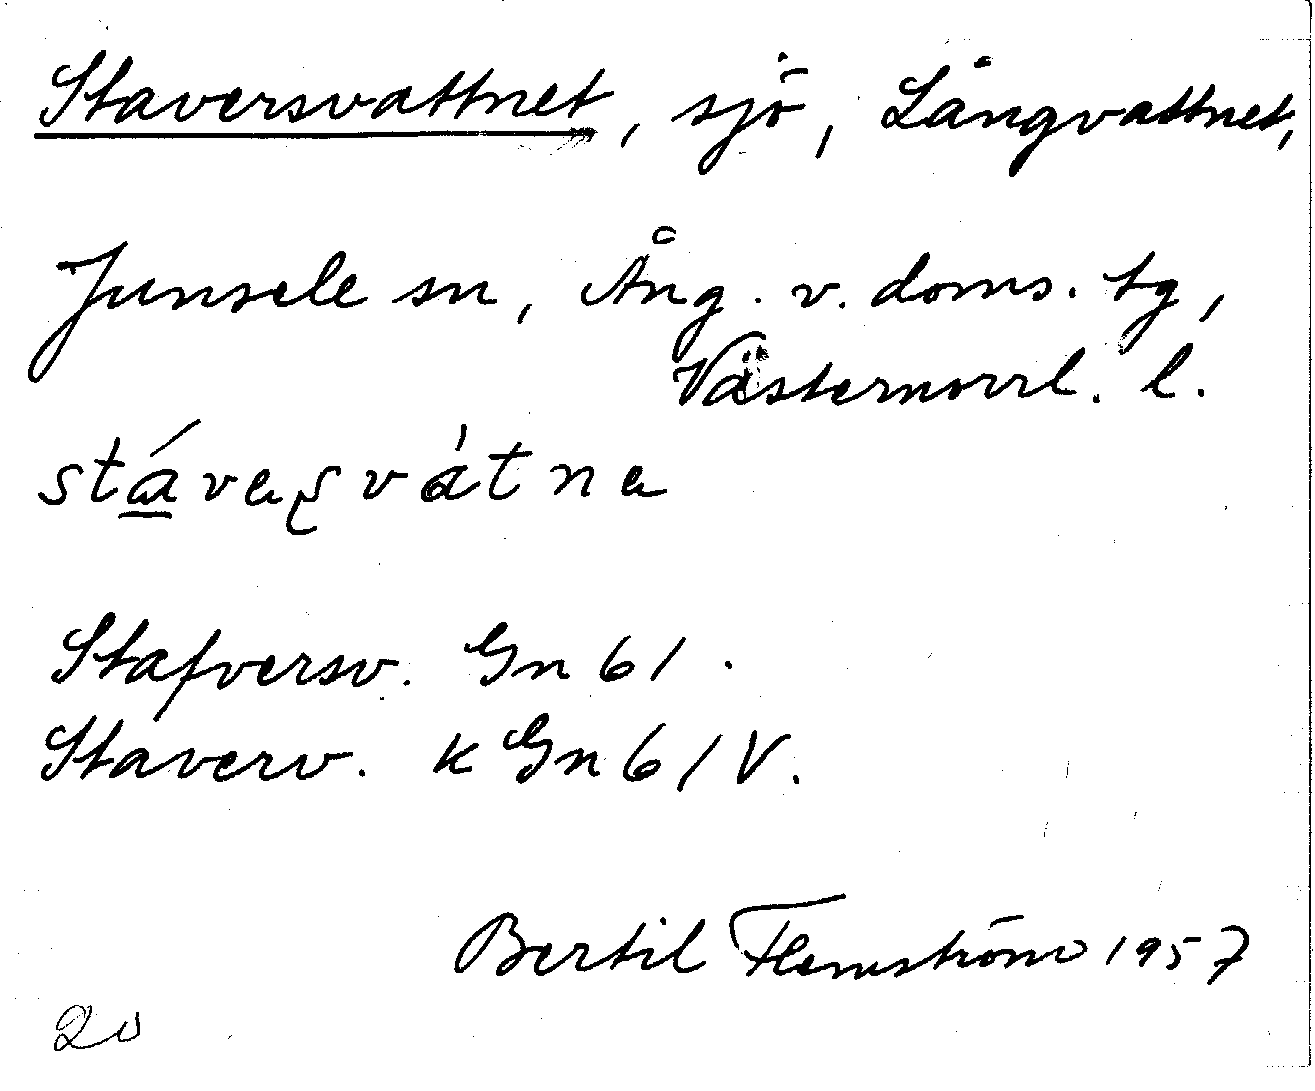 Staversvattnet, sjö, Långvattnet,
Junsele sn, Ång. v. doms. tg,
Västernorrl. l.
stá̱vaʂvátna
Stafversv. Gn 61.
Staverv. k Gn 61 V.
Bertil Flemström 1957
20